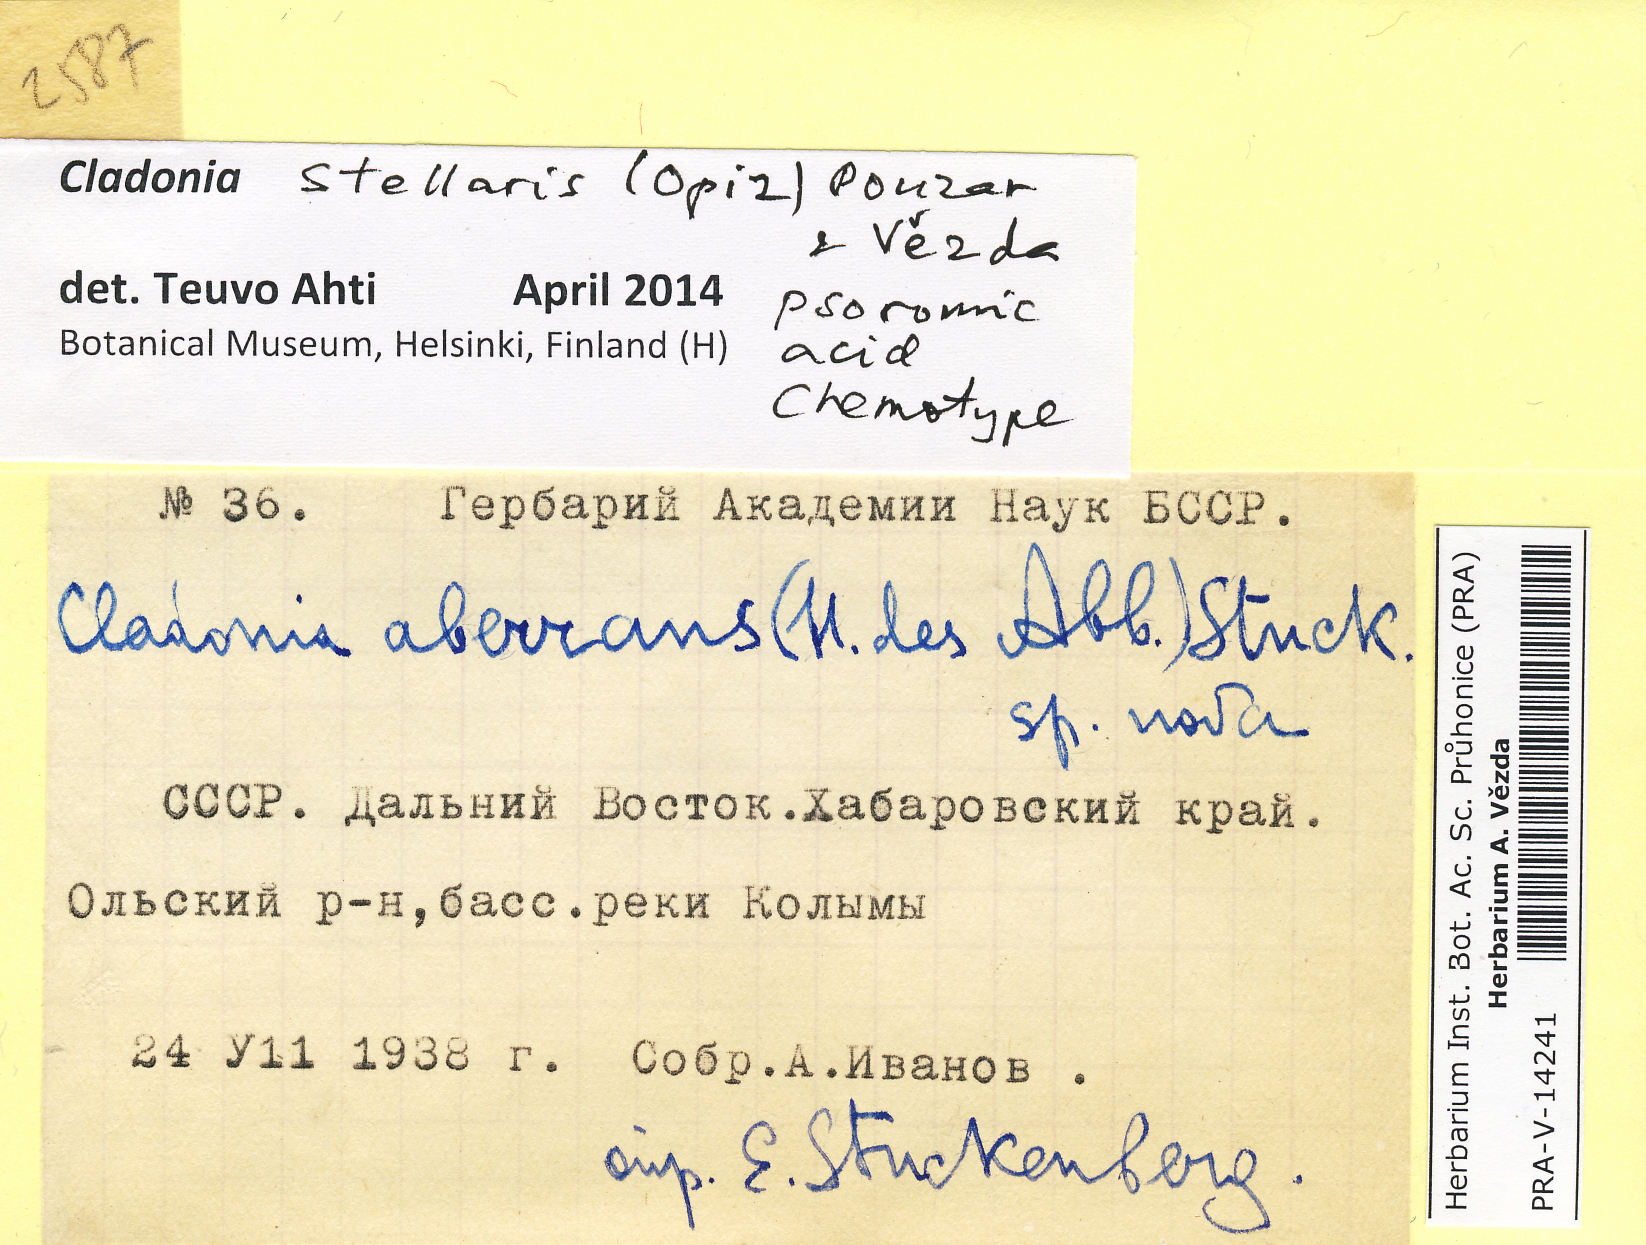 2587
Cladonia stellaris (Opiz) Pouzar
& Vězda
det. Teuvo Ahti April 2014
Botanical Museum, Helsinki, Finland (H)
psoromic
acid
chemotype
№ 36. Гербарий Академии Наук БССР.
Cladonia aberrans (H. des Abb.) Stuck.
sp. nova
СССР. Дальний Восток.Хабаровский край.
Ольский р-н,басс.реки Колымы
24 У11 1938 г. Собр.А.Иванов .
опр. E. Stuckenberg.
Herbarium Inst. Bot. Ac. Sc. Průhonice (PRA)
Herbarium A. Vězda
PRA-V-14241